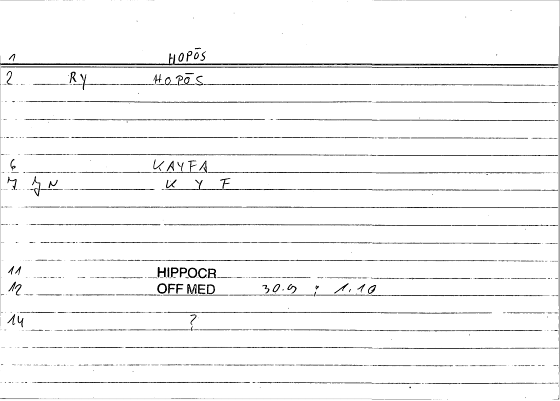 1 HOPŌS
2 RY HOPŌS
6 KAYFA
7 JN K Y F
11 HIPPOCR
12 OFF MED 30.9 ; 1.10
14 ?